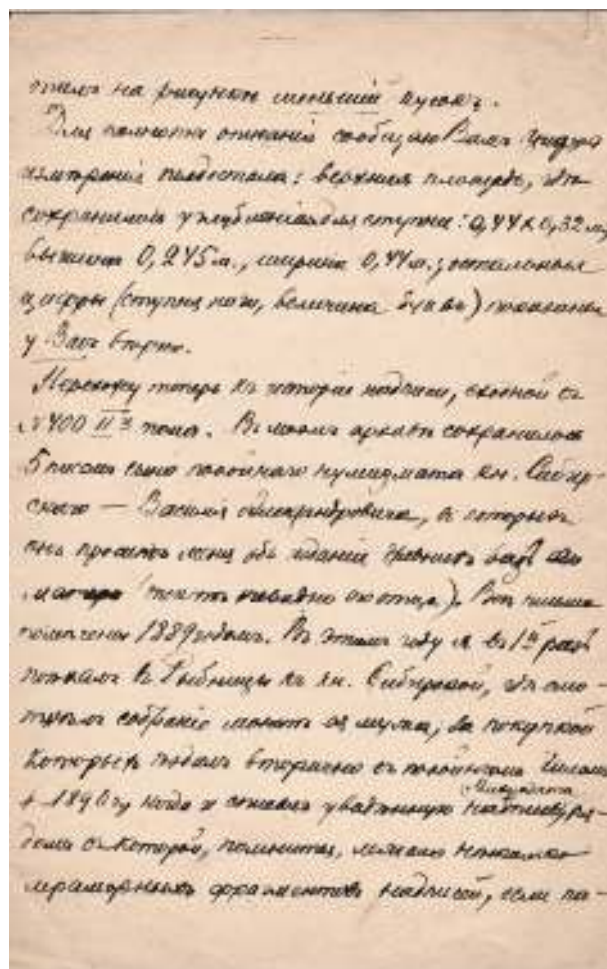 на рисунке меньшій кусокъ.
Для полноты описанія сообщаю Вамъ
измѣренія пьедестала: верхняя площадь, гдѣ
сохранились углубленія для ступни: 0,44 x 0,32 м,
вышина 0,245 м., ширина 0,44 м.; остальныя
цифры (ступня ноги, величина буквъ) показаны
у Васъ вѣрно.
Перехожу теперь къ исторіи надписи, сходной съ
№ 400 II тома. Въ моемъ архивѣ сохранилось
5 писемъ сына покойнаго нумизмата кн. Сибир-
скаго — Василія Александровича, въ которыхъ
онъ проситъ меня объ изданіи
. Всѣ письма
помѣчены 1889 годомъ. Въ этомъ году я въ 1й разъ
поѣхалъ въ Рыбницы къ кн. Сибирской, гдѣ смо-
трѣлъ собраніе монетъ ея мужа, за покупкой
которыхъ ѣздилъ вторично съ покойнымъ
1890 г., когда я списалъ надпись, ря-
домъ съ которой, помнится, лежало нѣсколько
мраморныхъ фрагментовъ надписей, если